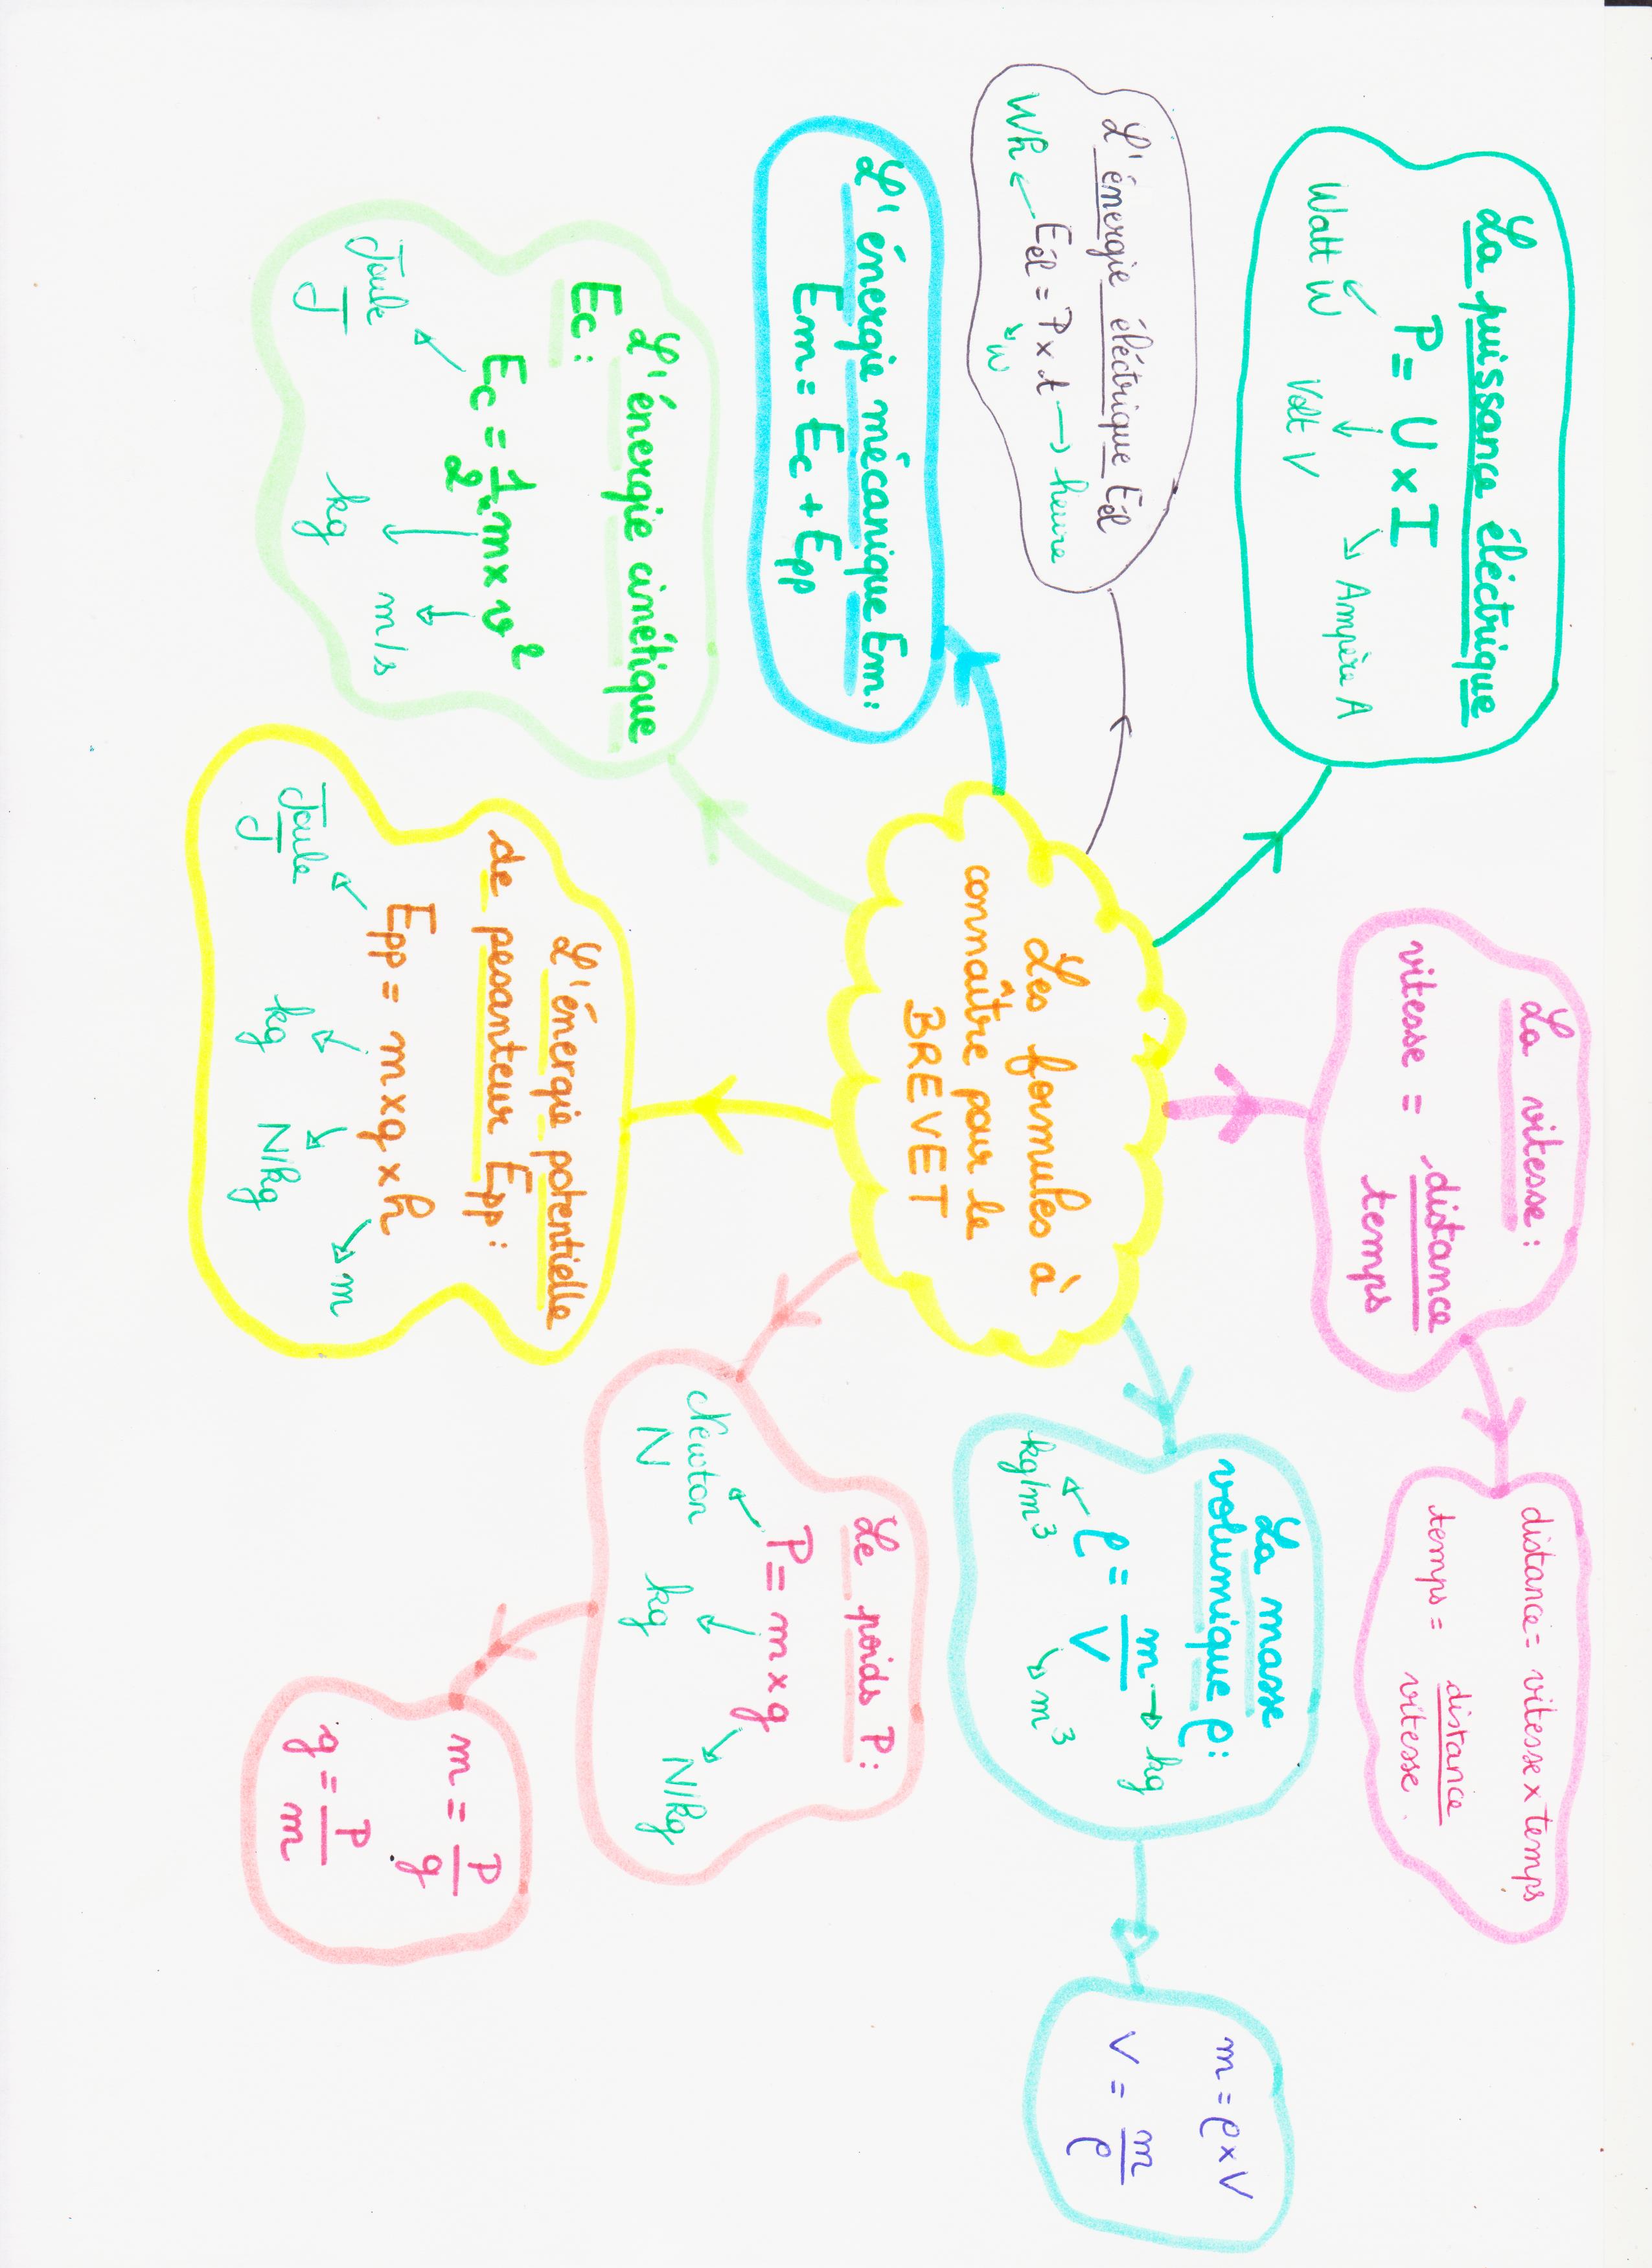 Les formules à
connaître pour le
BREVET
La puissance éléctrique
P = U x I
Watt W
Volt V
Ampère A
La vitesse :
vitesse = distance / temps
distance = vitesse x temps
temps = distance / vitesse
La masse
volumique ρ :
ρ = m / V
kg
kg/m³
m³
m = ρ x V
V = m / ρ
L'énergie éléctrique Eél
Eél = P x t → heure
Wh
W
L'énergie mécanique Em :
Em = Ec + Epp
Le poids P :
P = m x g
Newton
N
kg
N/kg
m = P / g
g = P / m
L'énergie cinétique
Ec :
Ec = 1/2 x m x v²
Joule
J
kg
m/s
L'énergie potentielle
de pesanteur Epp :
Epp = m x g x h
Joule
J
kg
N/kg
m